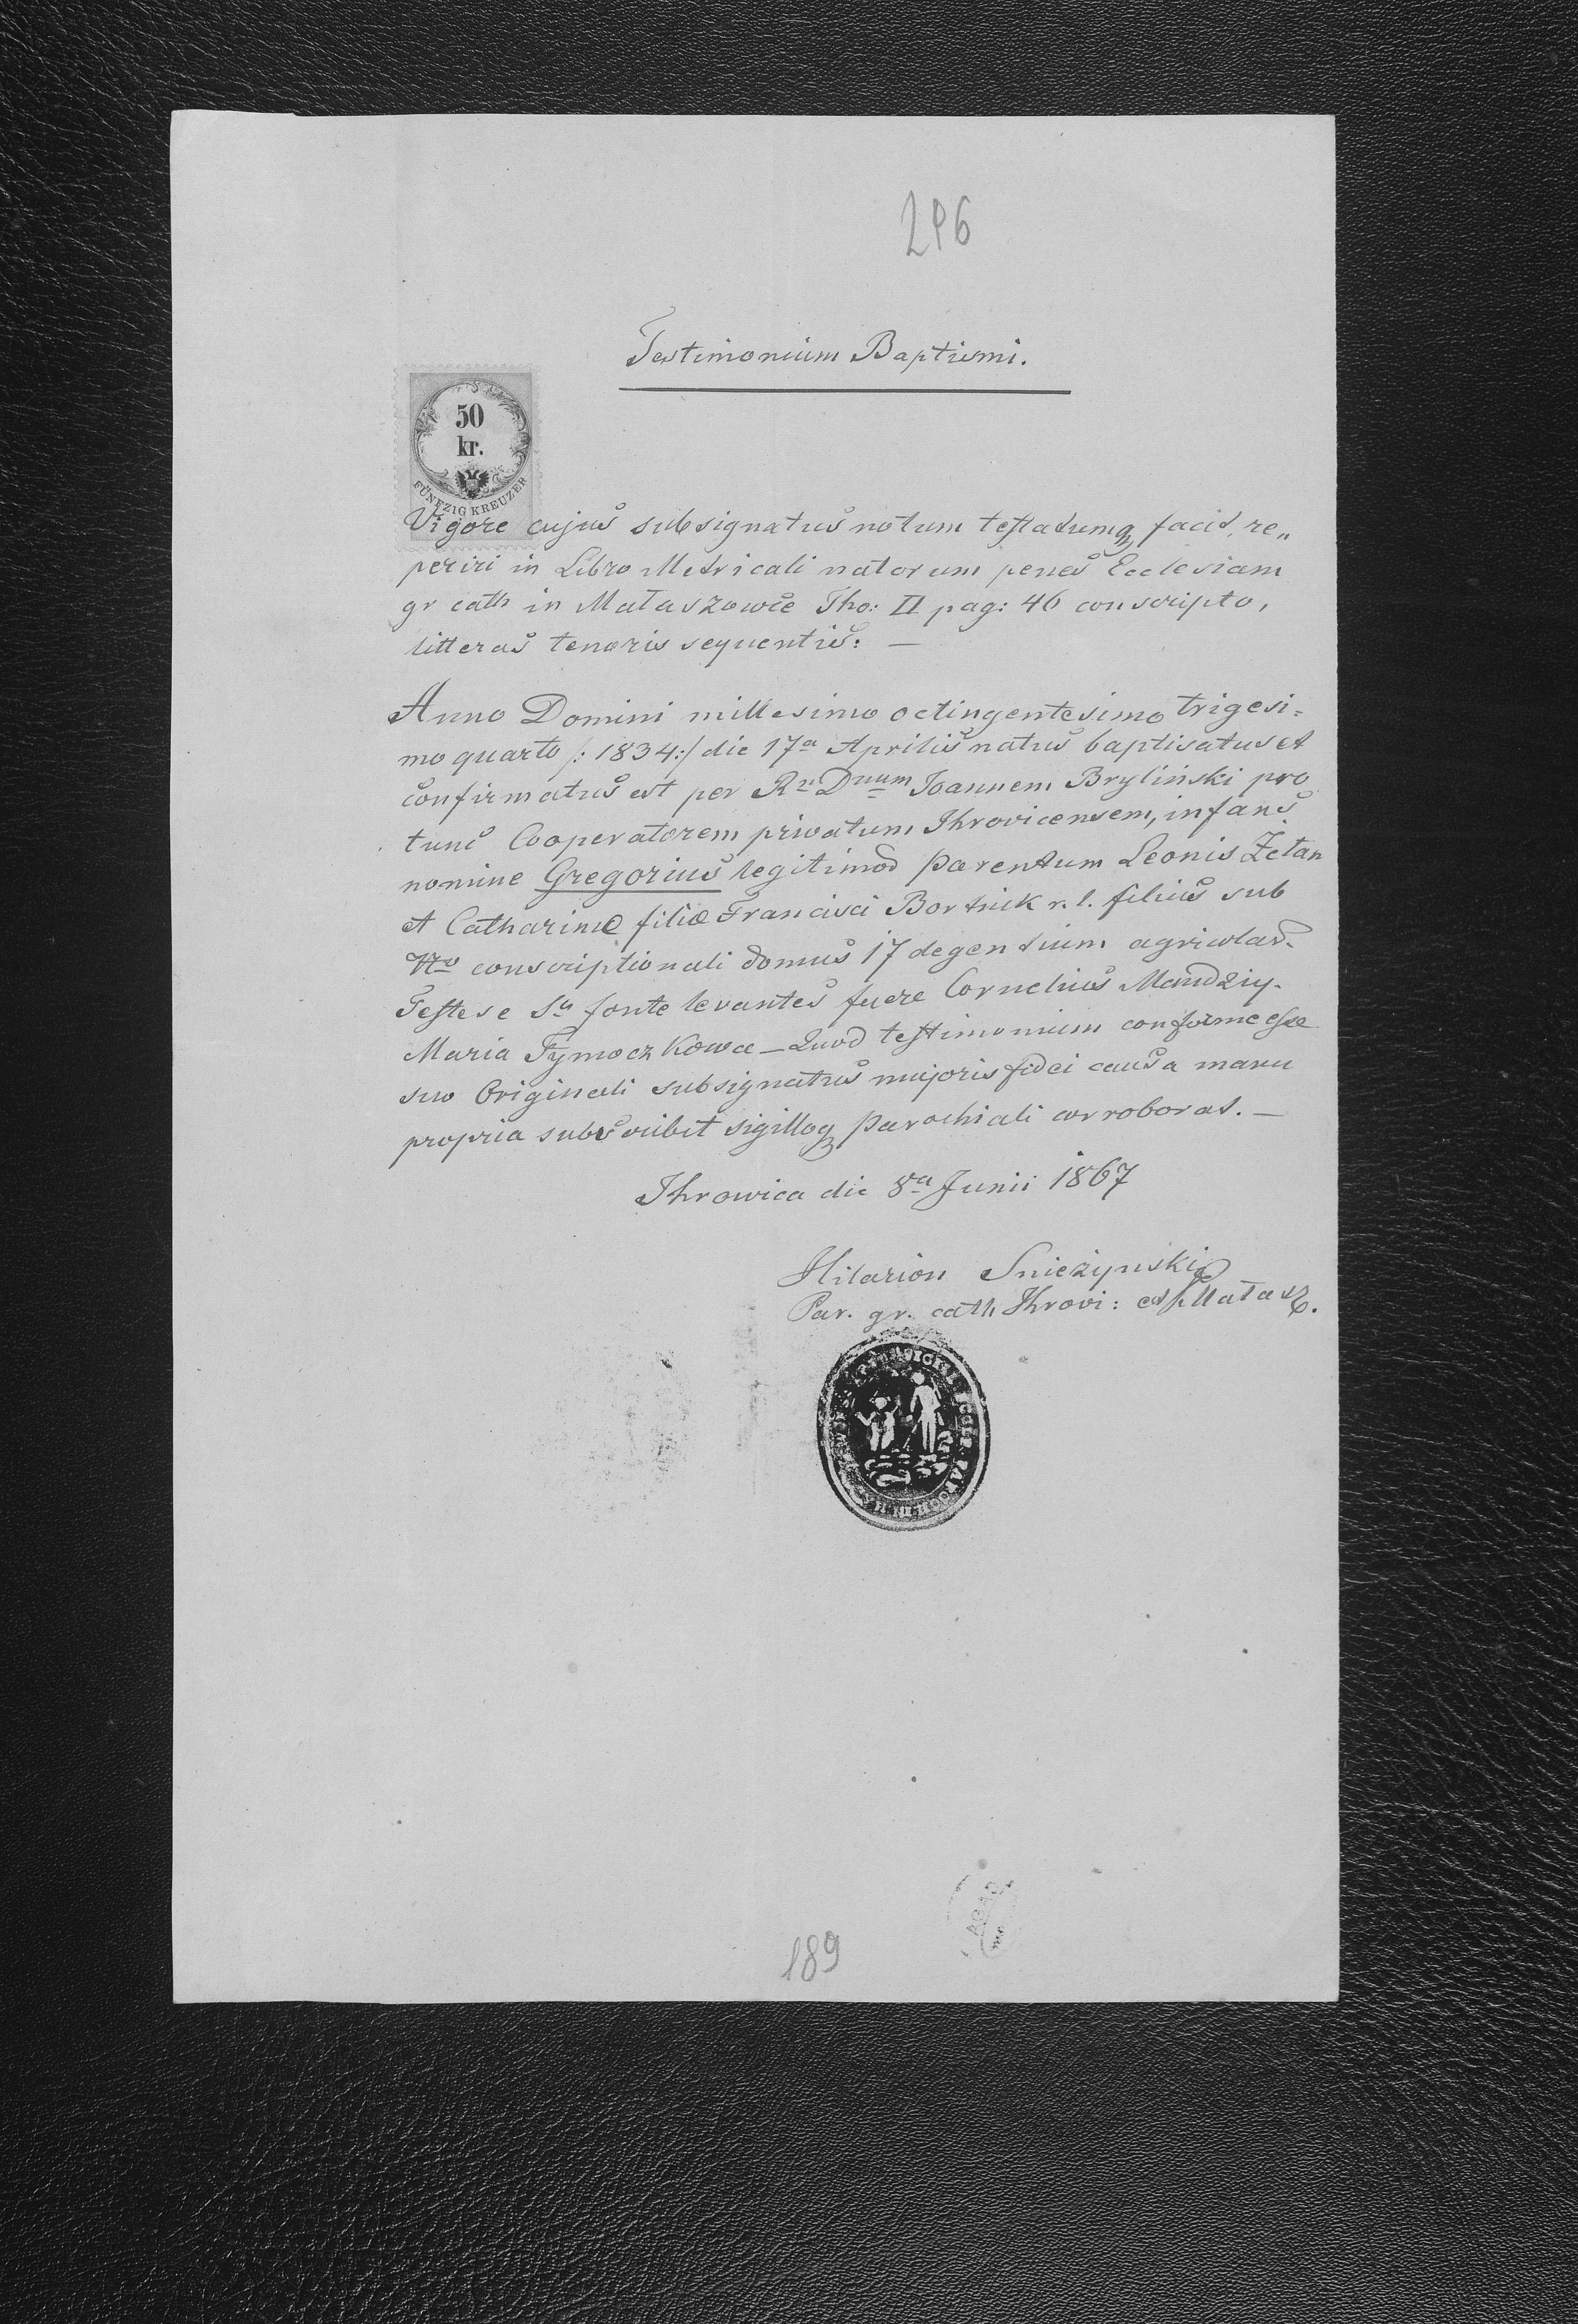 296
Testimonium Baptismi.
50
kr.
FÜNFZIG KREUZER
Vigore cujus subsignatus notum testatumq facit, re„
periri in Libro Metricali natorum penes Ecclesiam
gr cath in Małaszowce Tho: II pag: 46 conscripto,
litteras tenoris sequentis: —
Anno Domini millesimo octingentesimo trigesi=
mo quarto /: 1834:/ die 17a Aprilis natus baptisatus et
confirmatus est per Rr Dnum Joannem Bryliński pro
tunc Cooperatorem privatum Ihrovicensem, infans
nomine Gregorius legitimor parentum Leonis Zetan
et Catharinæ filiæ Francisci Bortnik r. l. filius sub
Nro conscriptionali domus 17 degentium agricolar.
Testes e So fonte levantes fuere Cornelius Mandziy.
Maria Tymoczkowa — Quod testimonium conforme esse
suo Originali subsignatus majoris fidei causa manu
propria subscribit sigilloq parochiali corroborat. —
Ihrowica die 8a Junii 1867
Hilarion Sniezynski
Par. gr. cath Ihrovi: et Małasz.
189